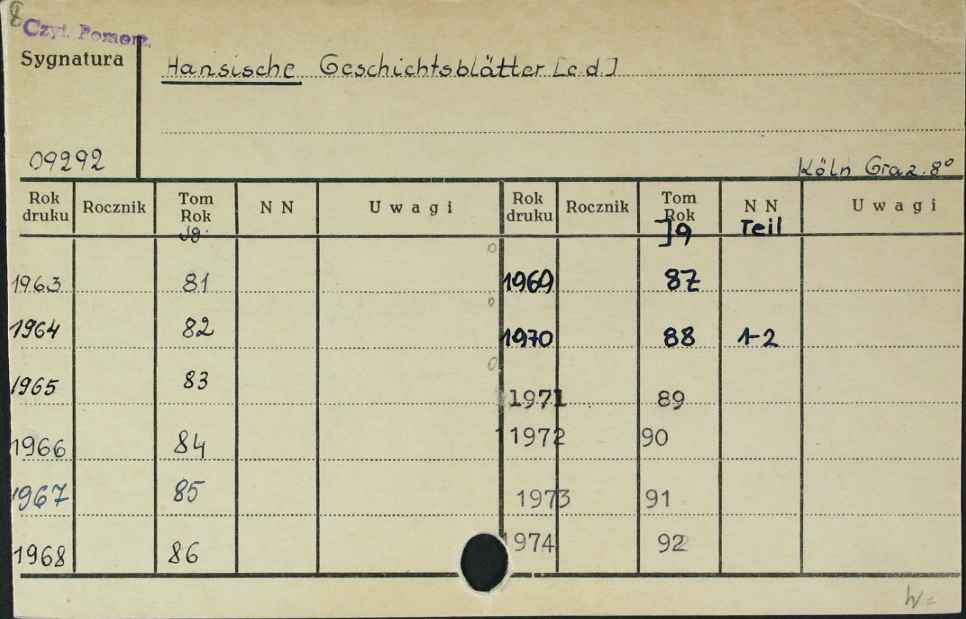 8
Czyt. Pomorz.
Sygnatura
Hansische Geschichtsblätter [c.d.]
09292
Köln Graz. 8°
Rok druku Rocznik Tom Rok NN Uwagi Rok druku Rocznik Tom Rok NN Uwagi
Jg. Jg Teil
1963 81 1969 87
1964 82 1970 88 1-2
1965 83 1971 89
1966 84 1972 90
1967 85 1973 91
1968 86 1974 92